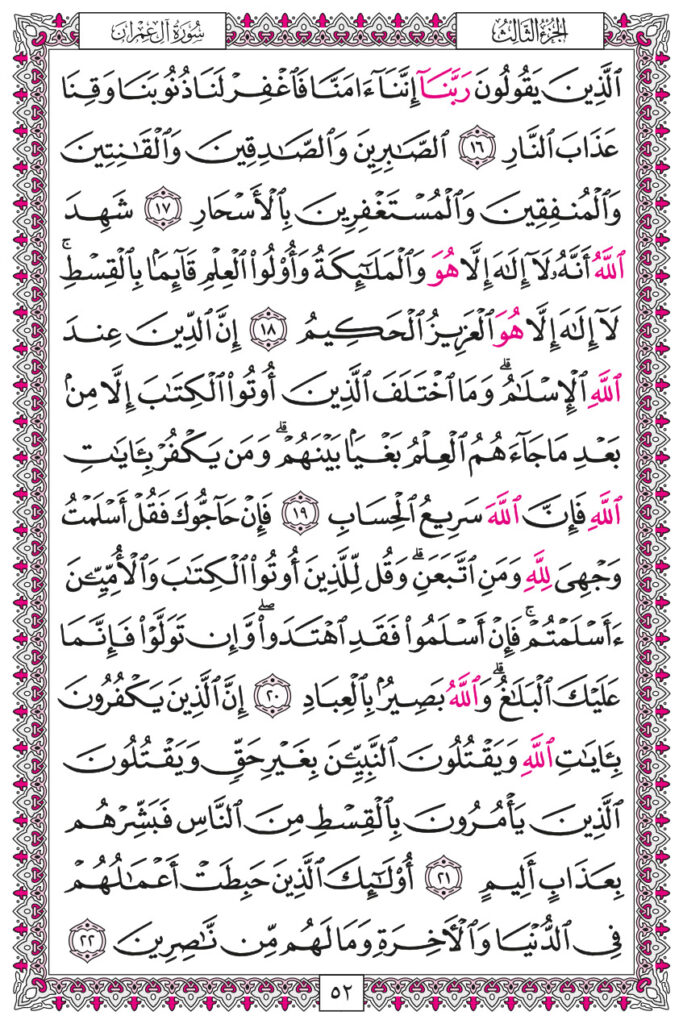 الجزء الثالث
سورة آل عمران
ٱلَّذِينَ يَقُولُونَ رَبَّنَآ إِنَّنَآ ءَامَنَّا فَٱغْفِرْ لَنَا ذُنُوبَنَا وَقِنَا
عَذَابَ ٱلنَّارِ ١٦ ٱلصَّٰبِرِينَ وَٱلصَّٰدِقِينَ وَٱلْقَٰنِتِينَ
وَٱلْمُنفِقِينَ وَٱلْمُسْتَغْفِرِينَ بِٱلْأَسْحَارِ ١٧ شَهِدَ
ٱللَّهُ أَنَّهُۥ لَآ إِلَٰهَ إِلَّا هُوَ وَٱلْمَلَٰٓئِكَةُ وَأُو۟لُوا۟ ٱلْعِلْمِ قَآئِمًۢا بِٱلْقِسْطِ ۚ
لَآ إِلَٰهَ إِلَّا هُوَ ٱلْعَزِيزُ ٱلْحَكِيمُ ١٨ إِنَّ ٱلدِّينَ عِندَ
ٱللَّهِ ٱلْإِسْلَٰمُ ۗ وَمَا ٱخْتَلَفَ ٱلَّذِينَ أُوتُوا۟ ٱلْكِتَٰبَ إِلَّا مِنۢ
بَعْدِ مَا جَآءَهُمُ ٱلْعِلْمُ بَغْيًۢا بَيْنَهُمْ ۗ وَمَن يَكْفُرْ بِـَٔايَٰتِ
ٱللَّهِ فَإِنَّ ٱللَّهَ سَرِيعُ ٱلْحِسَابِ ١٩ فَإِنْ حَآجُّوكَ فَقُلْ أَسْلَمْتُ
وَجْهِىَ لِلَّهِ وَمَنِ ٱتَّبَعَنِ ۗ وَقُل لِّلَّذِينَ أُوتُوا۟ ٱلْكِتَٰبَ وَٱلْأُمِّيِّـۧنَ
ءَأَسْلَمْتُمْ ۚ فَإِنْ أَسْلَمُوا۟ فَقَدِ ٱهْتَدَوا۟ ۖ وَّإِن تَوَلَّوْا۟ فَإِنَّمَا
عَلَيْكَ ٱلْبَلَٰغُ ۗ وَٱللَّهُ بَصِيرٌۢ بِٱلْعِبَادِ ٢٠ إِنَّ ٱلَّذِينَ يَكْفُرُونَ
بِـَٔايَٰتِ ٱللَّهِ وَيَقْتُلُونَ ٱلنَّبِيِّـۧنَ بِغَيْرِ حَقٍّ وَيَقْتُلُونَ
ٱلَّذِينَ يَأْمُرُونَ بِٱلْقِسْطِ مِنَ ٱلنَّاسِ فَبَشِّرْهُم
بِعَذَابٍ أَلِيمٍ ٢١ أُو۟لَٰٓئِكَ ٱلَّذِينَ حَبِطَتْ أَعْمَٰلُهُمْ
فِى ٱلدُّنْيَا وَٱلْـَٔاخِرَةِ وَمَا لَهُم مِّن نَّٰصِرِينَ ٢٢
٥٢